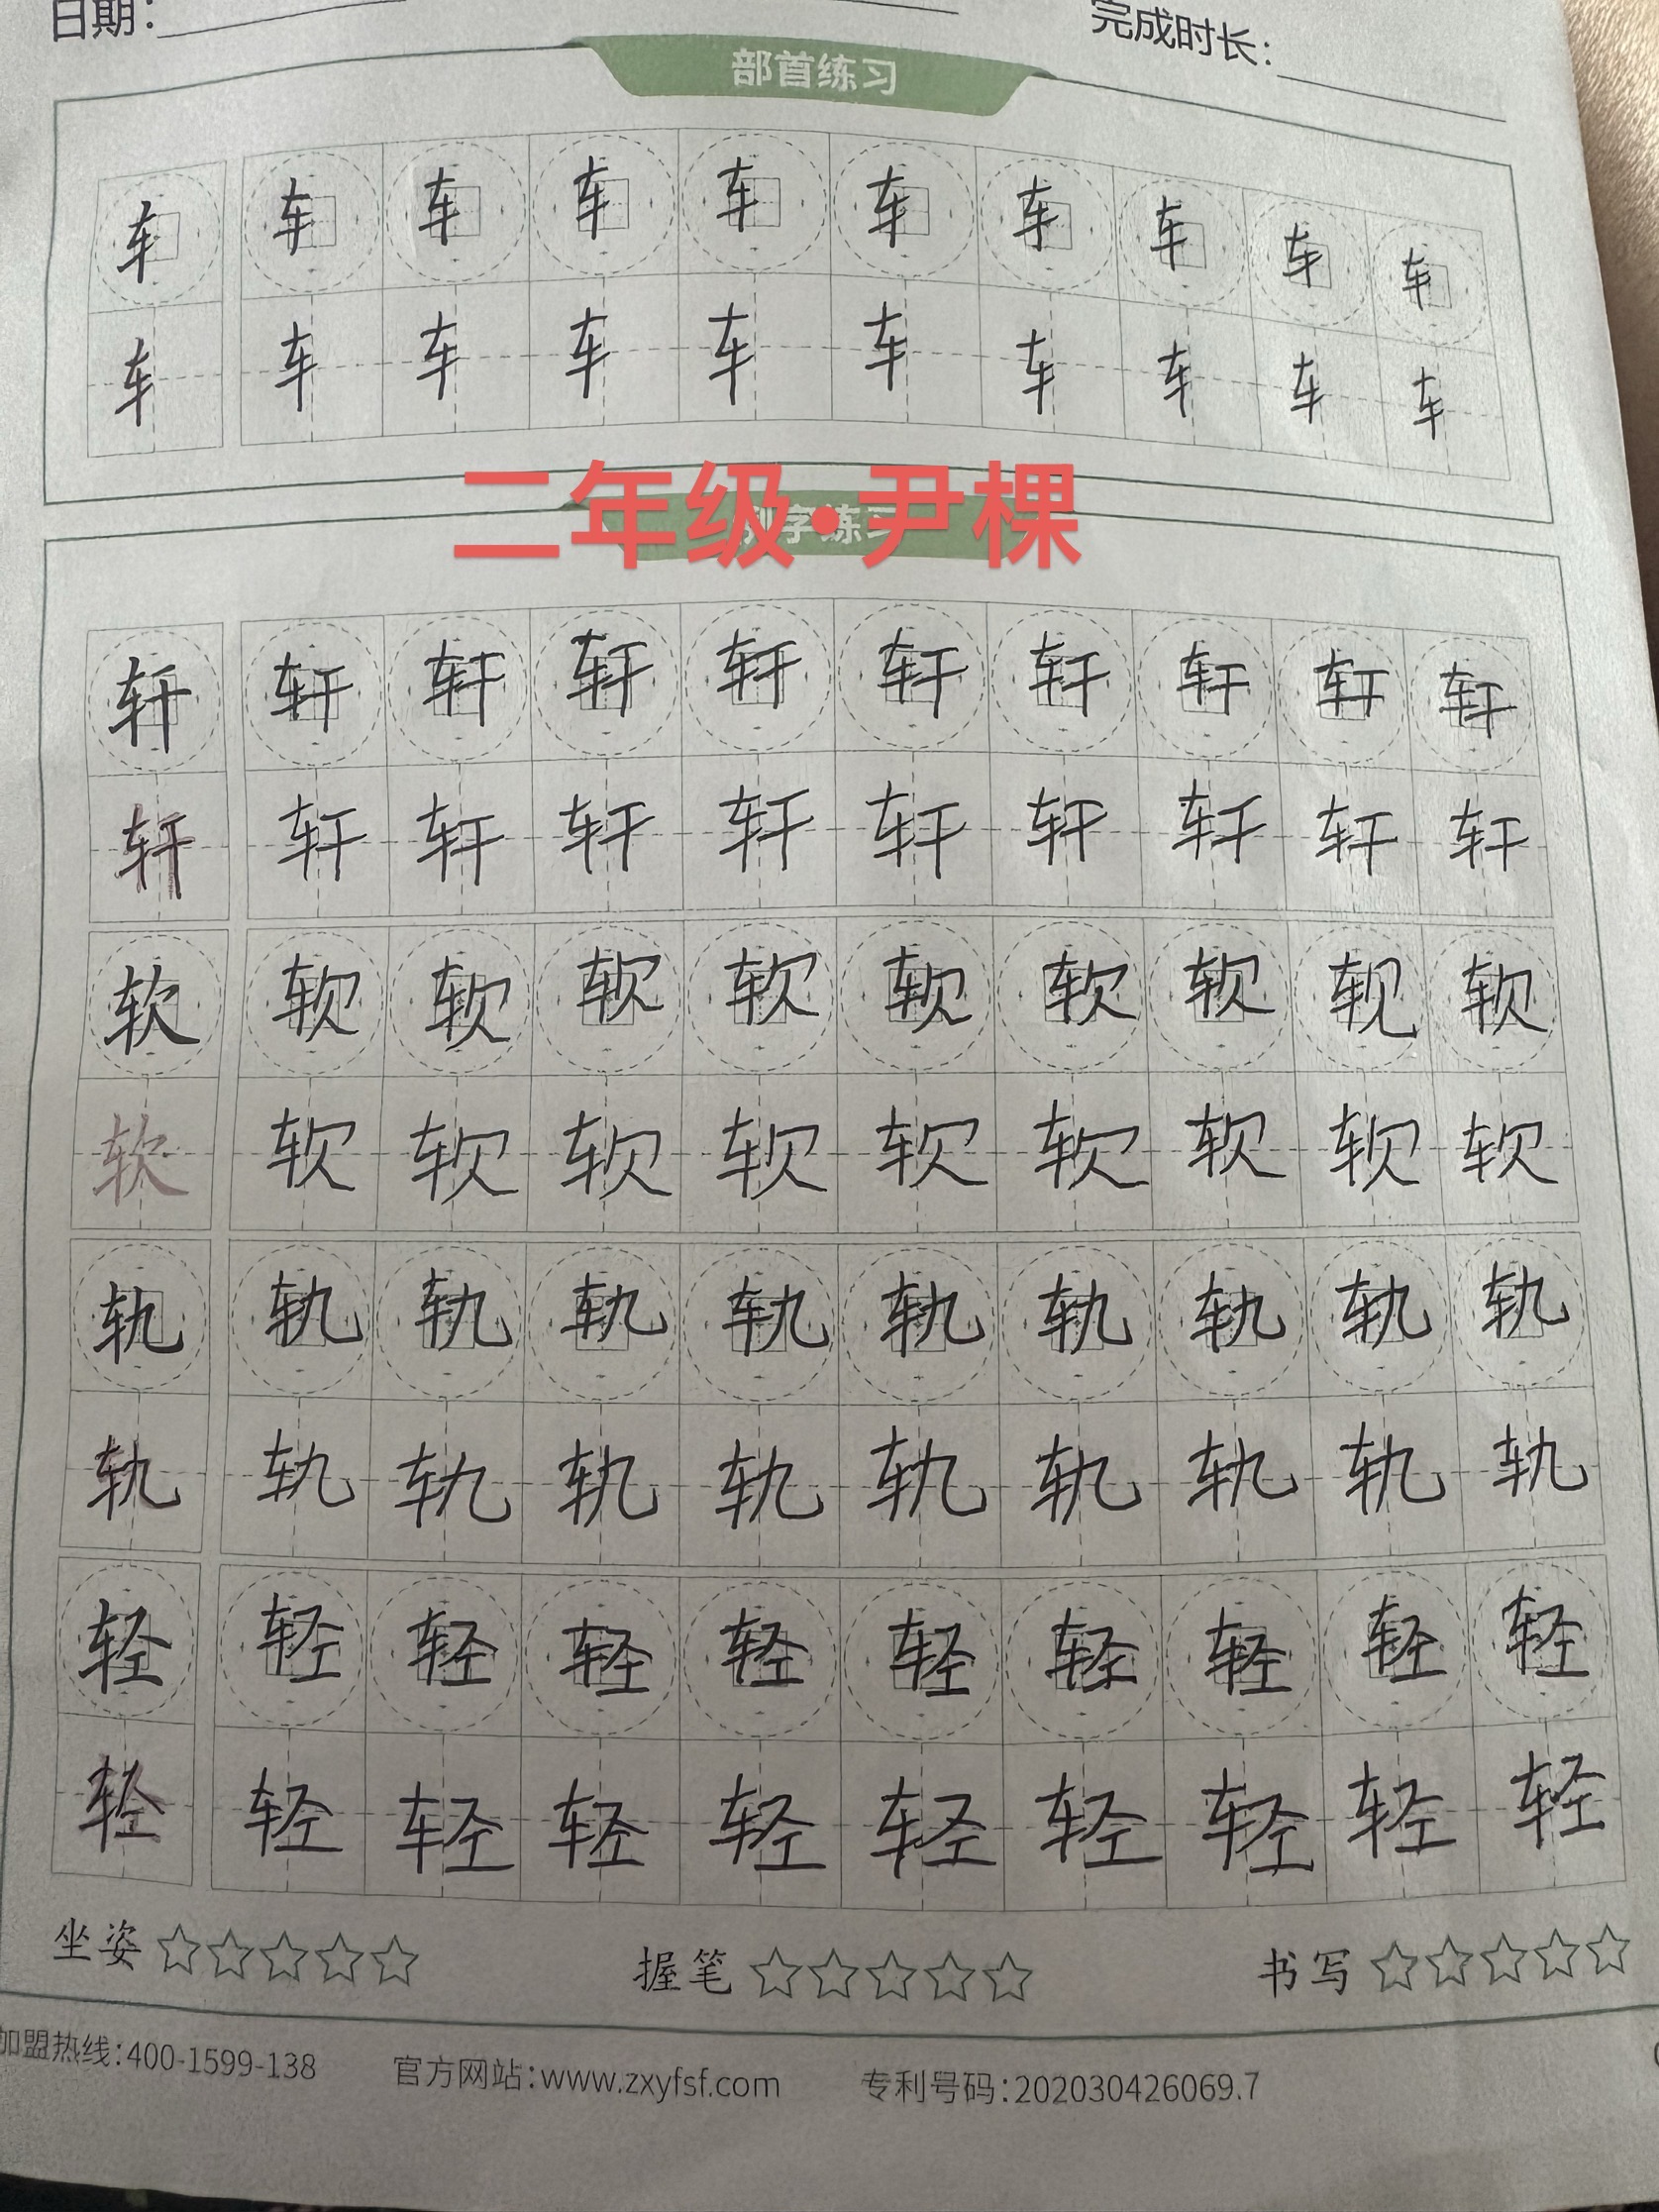 日期： 完成时长：
部首练习
车 车 车 车 车 车 车 车 车 车
车 车 车 车 车 车 车 车 车 车
二年级·尹棵
例字练习
轩 轩 轩 轩 轩 轩 轩 轩 轩 轩
轩 轩 轩 轩 轩 轩 轩 轩 轩 轩
软 软 软 软 软 软 软 软 软 软
软 软 软 软 软 软 软 软 软 软
轨 轨 轨 轨 轨 轨 轨 轨 轨 轨
轨 轨 轨 轨 轨 轨 轨 轨 轨 轨
轻 轻 轻 轻 轻 轻 轻 轻 轻 轻
轻 轻 轻 轻 轻 轻 轻 轻 轻 轻
坐姿 ☆☆☆☆☆ 握笔 ☆☆☆☆☆ 书写 ☆☆☆☆☆
加盟热线：400-1599-138 官方网站：www.zxyfsf.com 专利号码：202030426069.7